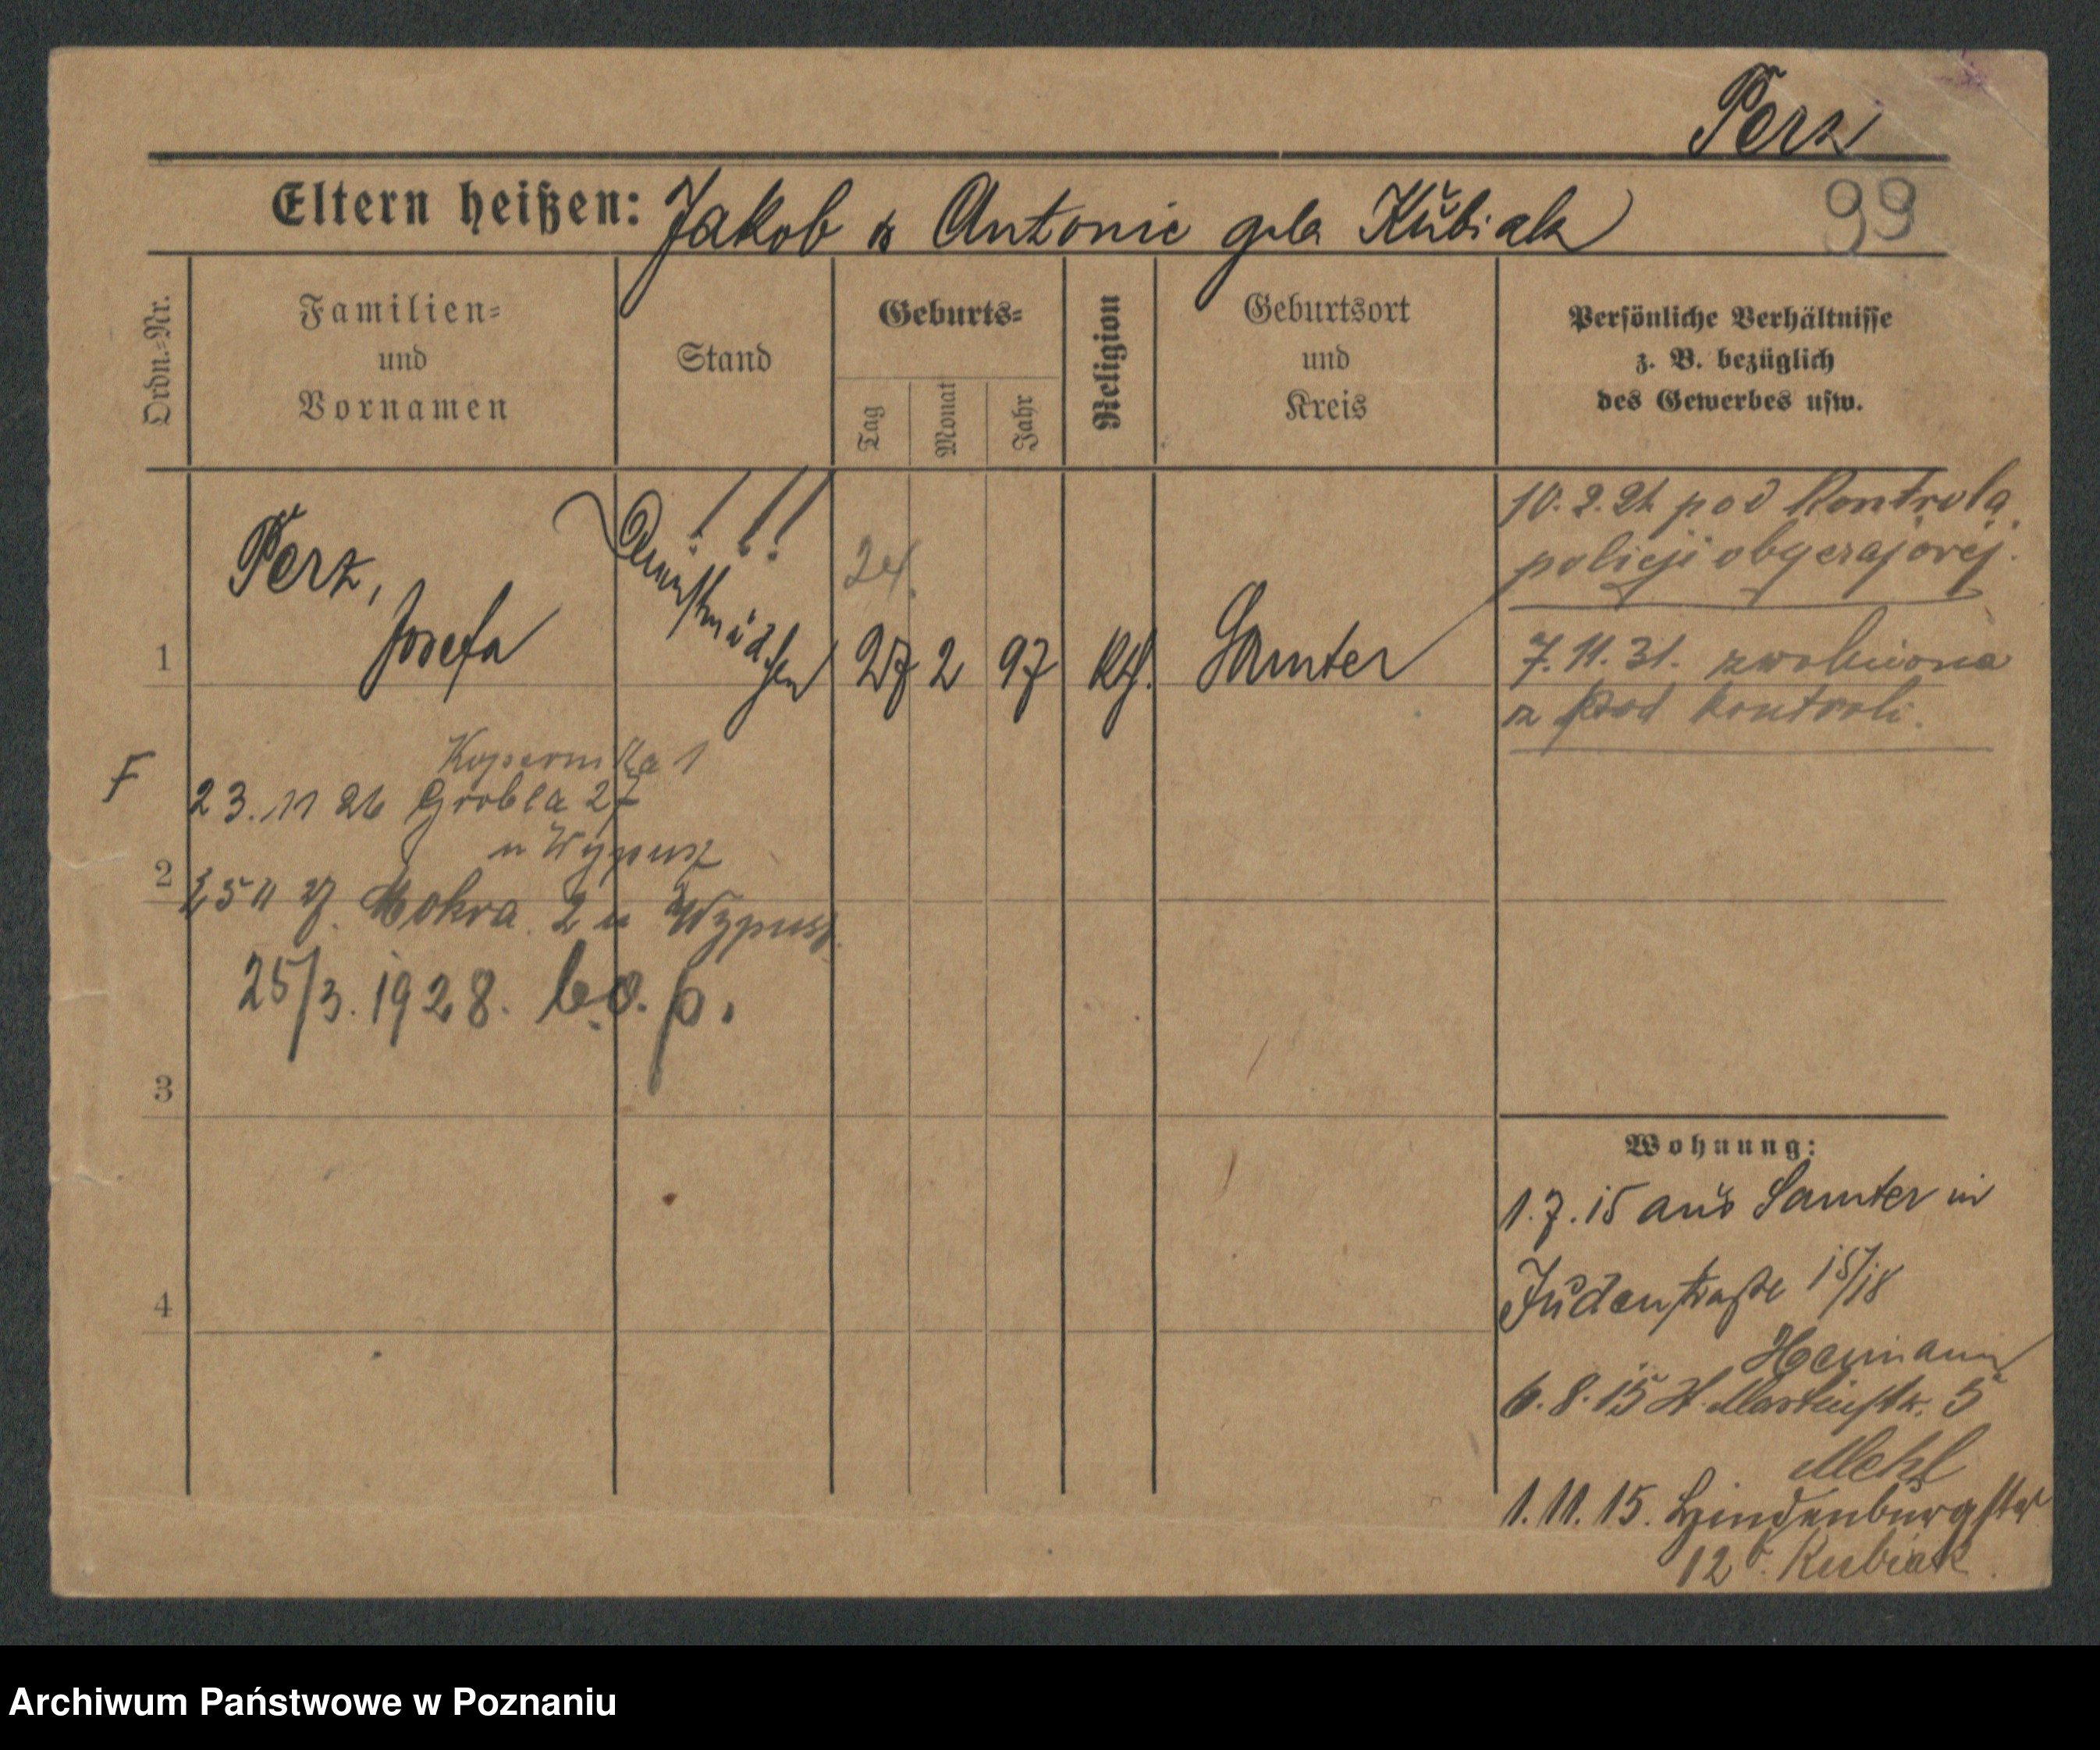 Perz
Eltern heißen: Jakob & Antonie geb Kŭbiak
99
Ordn.=Nr.
Familien=
und
Vornamen
Stand
Geburts=
Tag
Monat
Jahr
Religion
Geburtsort
und
Kreis
Persönliche Verhältnisse
z. B. bezüglich
des Gewerbes usw.
1
Perz,
Josefa
! ! !
Dienstmädchen
24.
27 2 97
kth.
Samter
10.2.21 pod kontrolą
policji obyczajowej.
7.11.31. zwolniona
z pod kontroli.
F
Kopernika 1
23.11 26 Grobla 27
u Wypusz
2
25 11 27. Mokra 2 u Wypusz.
25/3.1928. b.o.p.
3
4
Wohnung:
1.7.15 aus Samter in
Jŭdenstraße 15/18
Hermann
6.8.15 St. Martinstr. 5
Mehl
1.11.15. Hindenbŭrgstr
12 b. Kubiak.
Archiwum Państwowe w Poznaniu